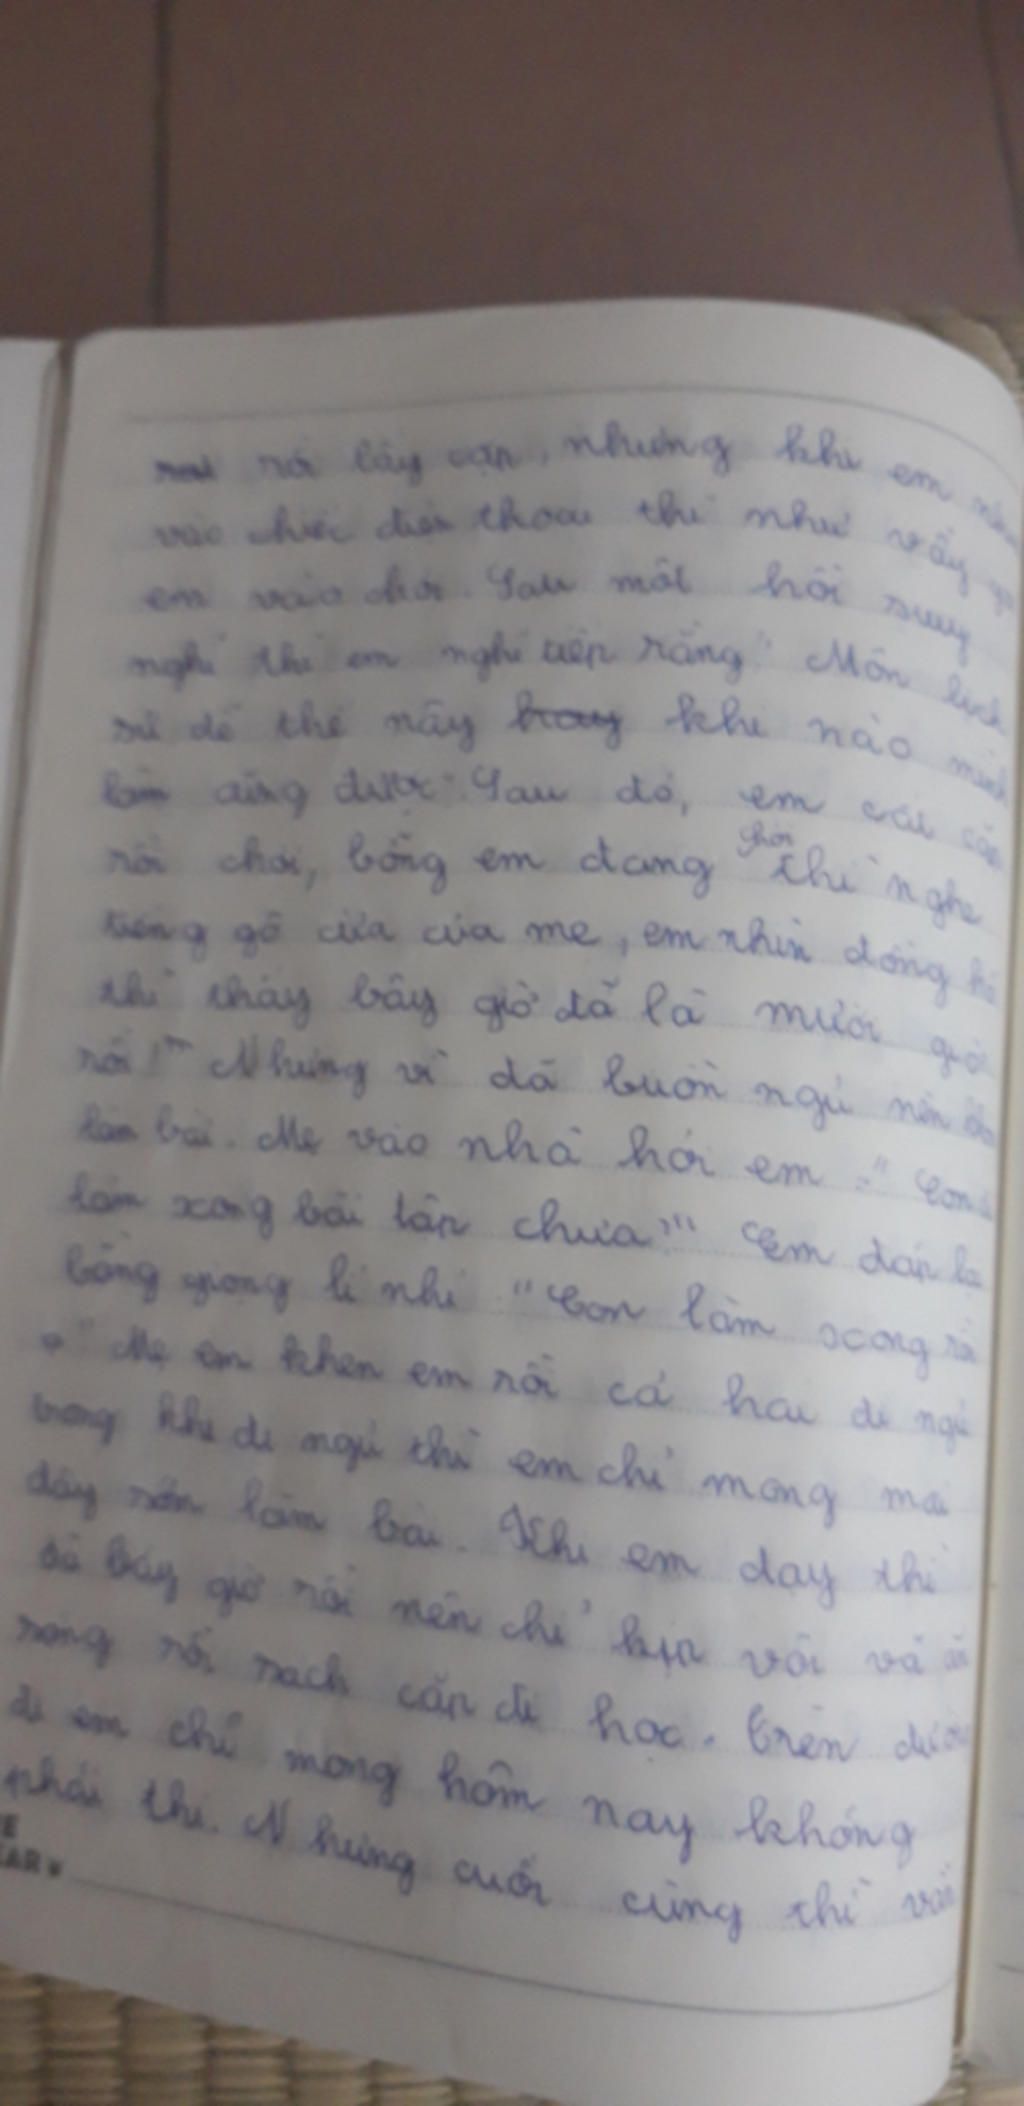 rồi lấy cặp, nhưng khi em
vào chiếc điện thoại thì như vậy
em vào chơi. Sau một hồi suy
nghĩ thì em nghĩ tiếp rằng "Môn lịch
sử dễ thế này khi nào mình
làm cũng được". Sau đó, em cài
rồi chơi, bỗng em đang chơi thì nghe
tiếng gõ cửa của mẹ, em nhìn đồng hồ
thì thấy bây giờ đã là mười giờ
rồi!" Nhưng vì đã buồn ngủ nên
làm bài. Mẹ vào nhà hỏi em: "Con
làm xong bài tập chưa?" Em đáp lại
bằng giọng lí nhí "Con làm xong rồi
ạ" Mẹ em khen em rồi cả hai đi ngủ
trong khi đi ngủ thì em chỉ mong mai
dậy sớm làm bài. Khi em dạy thì
đã bảy giờ rồi nên chỉ kịp vội vã ăn
sáng rồi xách cặp đi học. Trên đường
đi em chỉ mong hôm nay không
phải thi. Nhưng cuối cùng thì vẫn